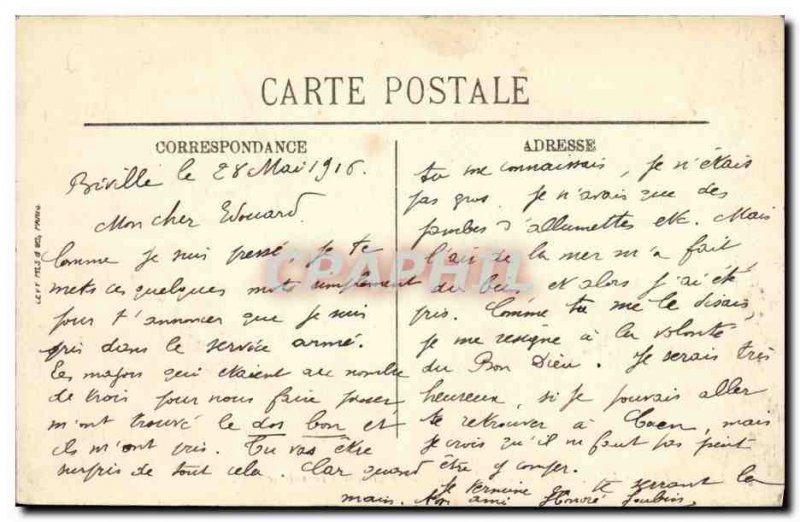 CARTE POSTALE
CORRESPONDANCE
Biville le 28 Mai 1916.
Mon cher Edouard.
Comme je suis pressé je te
mets ces quelques mots simplement
pour t'annoncer que je suis
pris dans le service armé.
Les majors qui étaient au nombre
de trois pour nous faire passer
m'ont trouvé le dos bon et
ils m'ont pris. Tu vas être
surpris de tout cela. Car quand
ADRESSE
tu me connaissais, je n'étais
pas gros. Je n'avais que des
jambes d'allumettes etc. Mais
l'air de la mer m'a fait
du bien et alors j'ai été
pris. Comme tu me le disais,
je me résigne à la volonté
du Bon Dieu. Je serais très
heureux, si je pouvais aller
te retrouver à Caen, mais
je crois qu'il ne faut pas peut
être y compter.
Je termine en te serrant la
main. Ton ami Honoré
LEVY FILS & Cie, PARIS
CPAPHIL